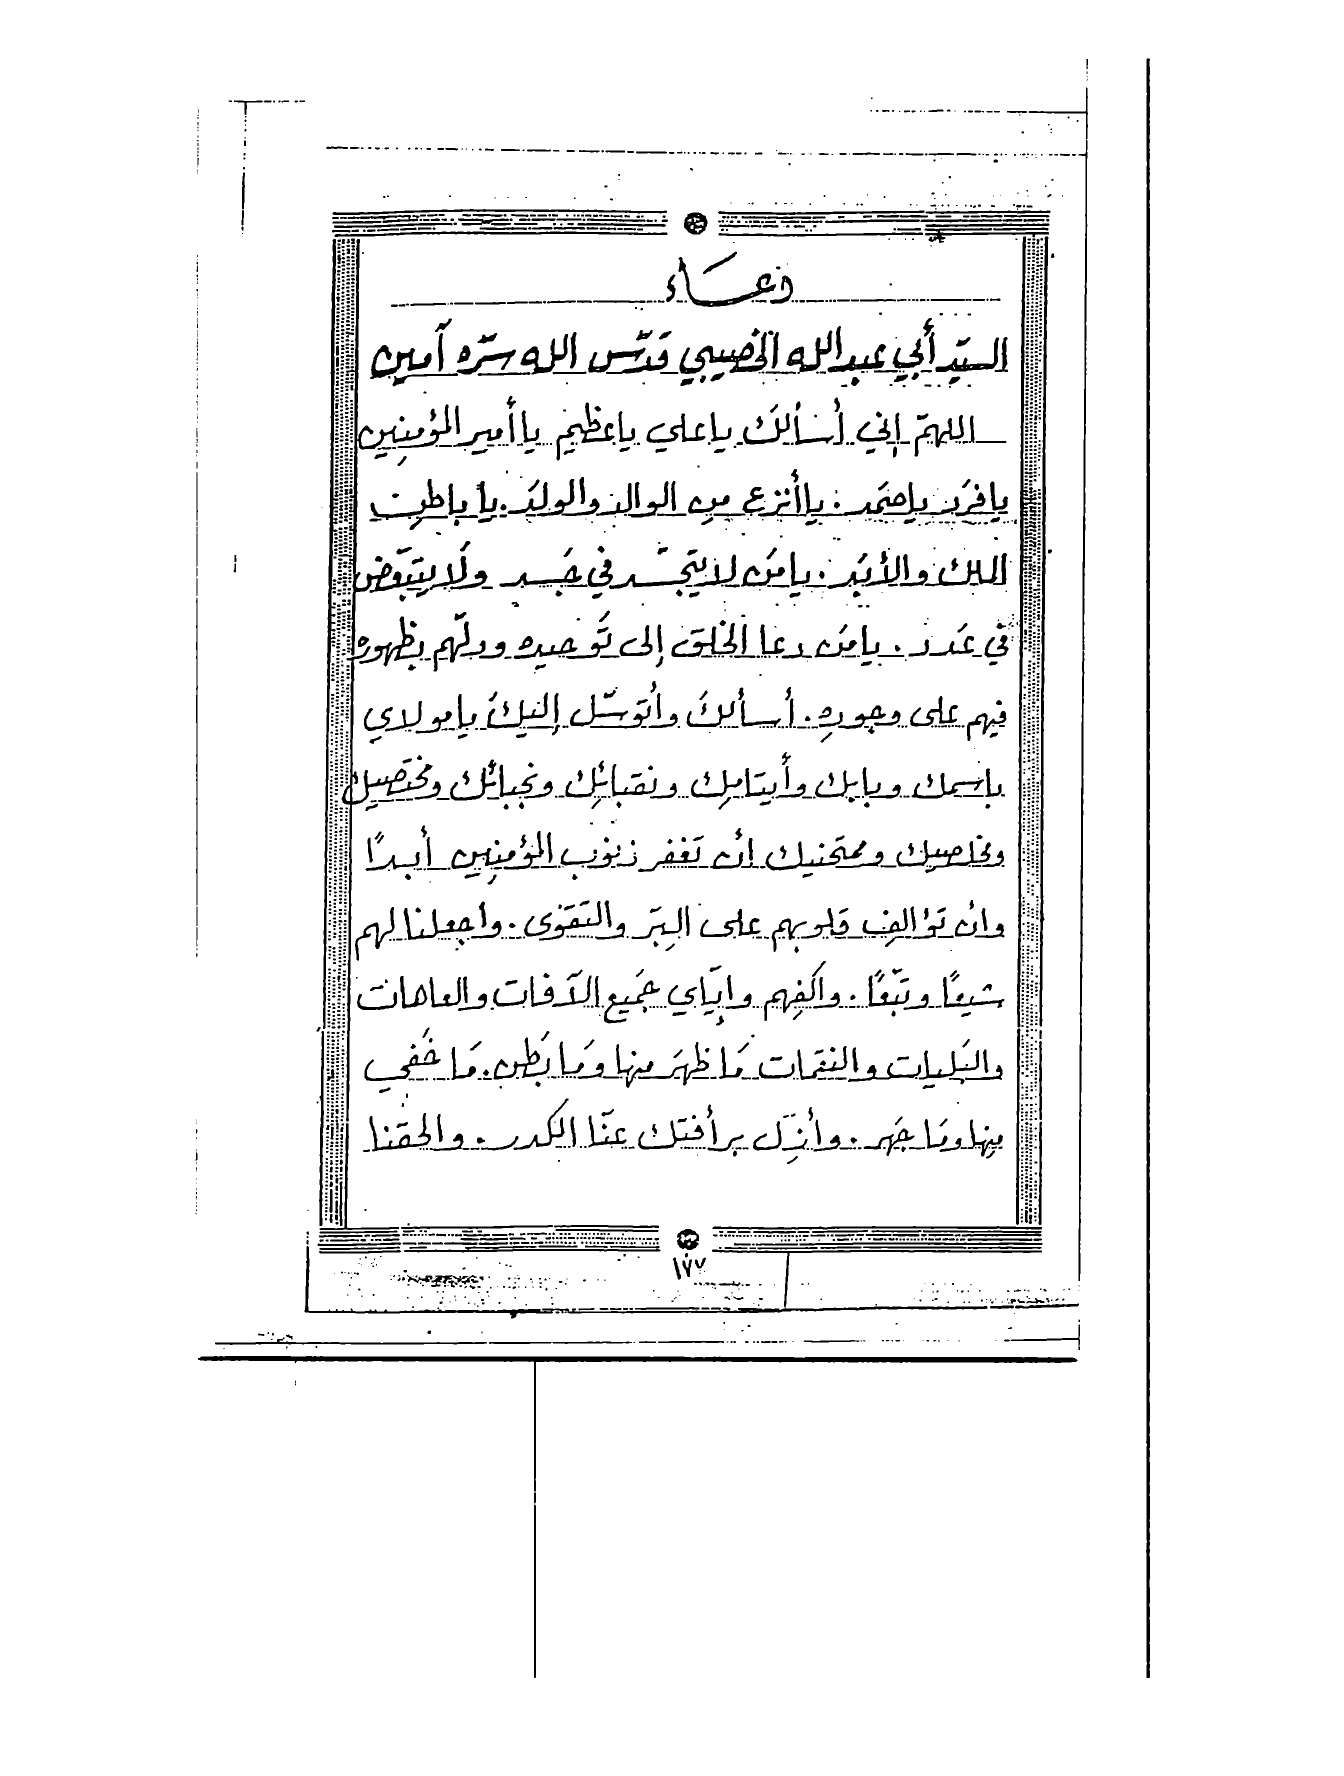 دعاء
السيّد أبي عبد الله الخصيبي قدّس الله سرّه آمين
اللهمّ إني أسألك يا علي يا عظيم يا أمير المؤمنين
يا فرد يا صمد . يا أنزع من الوالد والولد . يا باطن
الملك والأبد . يا من لا يتجسّد في جسد ولا يتبعّض
في عدد . يا من دعا الخلق إلى توحيده ودلّهم بظهوره
فيهم على وجوده . أسألك وأتوسّل إليك يا مولاي
باسمك وبابك وأيتامك ونقبائك ونجبائك ومختصيك
ومخلصيك وممتحنيك ان تغفر ذنوب المؤمنين أبدًا
وان تؤالف قلوبهم على البِرّ والتقوى . واجعلنا لهم
شيعًا وتبّعًا . واكفهم وإيّاي جميع الآفات والعاهات
والبليات والنقمات ما ظهر منها وما بطن . ما خفي
منها وما جهر . وأنزل برأفتك عنّا الكدر . والحقنا
١٧٧